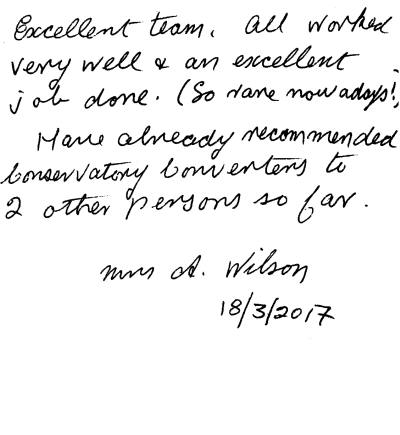 Excellent team. All worked
very well & an excellent
job done. (So rare nowadays!)
Have already recommended
Conservatory Converters to
2 other persons so far.
Mrs A. Wilson
18/3/2017